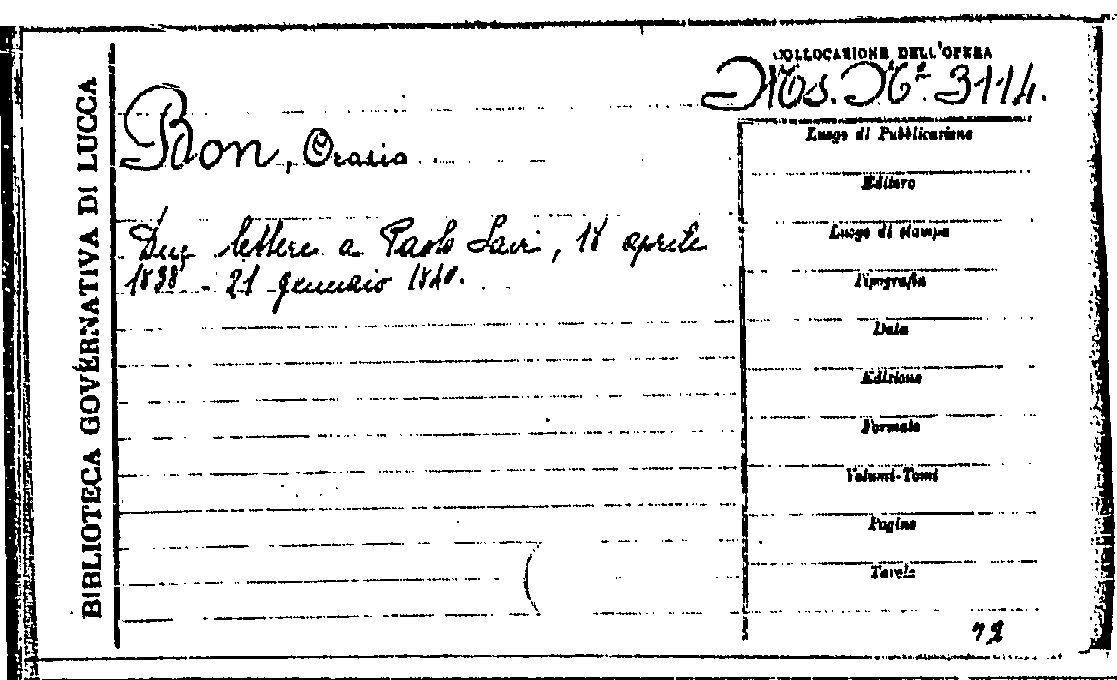 BIBLIOTECA GOVERNATIVA DI LUCCA
COLLOCAZIONE DELL'OPERA
Ms. N.º 3114.
Bon, Orazio
Due lettere a Paolo Savi, 18 aprile
1838 - 21 gennaio 1840.
Luogo di Pubblicazione
Editore
Luogo di stampa
Tipografia
Data
Edizione
Formato
Volumi-Tomi
Pagine
Tavole